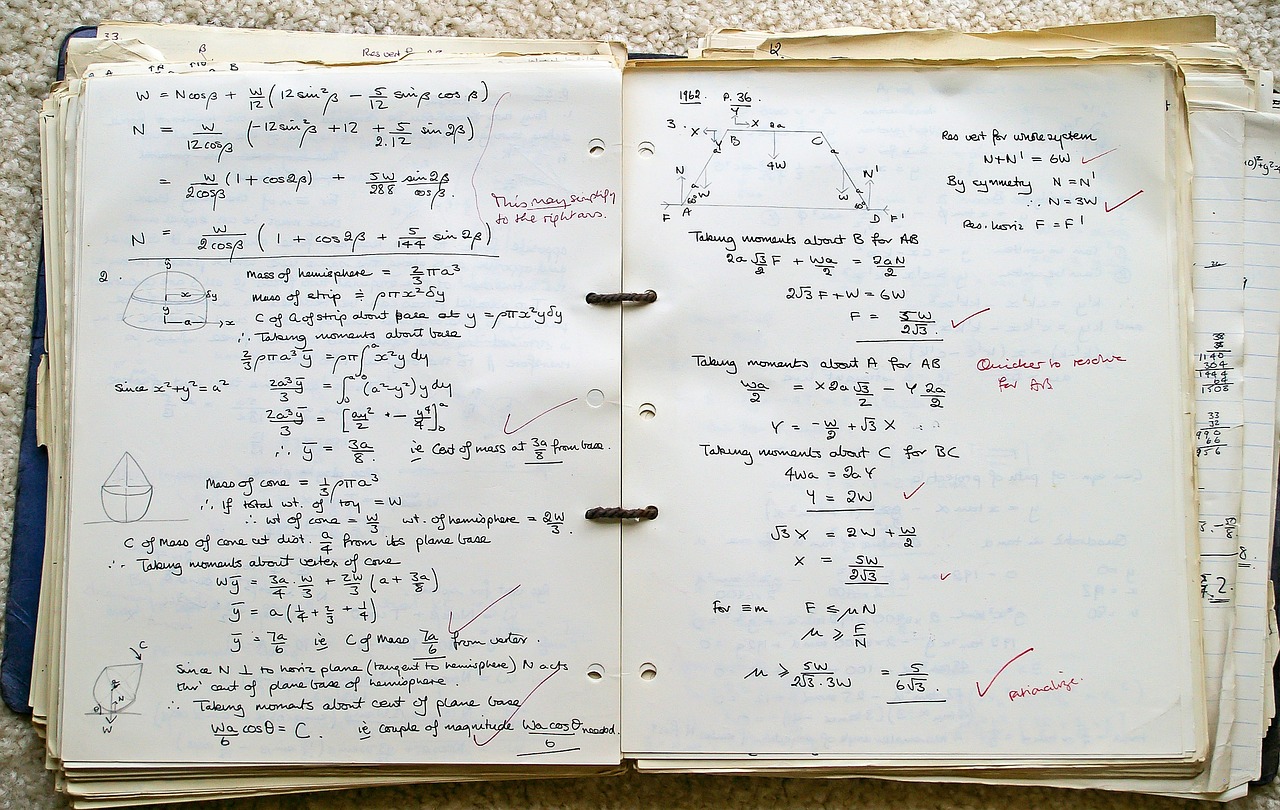 33.
β
Res vert
B
W = Ncosβ + W/12 (12 sin²β − 5/12 sinβ cosβ)
N = W/12cosβ (−12sin²β + 12 + 5/2.12 sin 2β)
= W/2cosβ (1 + cos2β) + 5W/288 sin2β/cosβ.
This may simplify
to the right ans.
N = W/2cosβ (1 + cos2β + 5/144 sin 2β)
2.
y
x δy
y
a x
Mass of hemisphere = 2/3 πa³
Mass of strip ≑ ρπx²δy
C of G of strip about base at y = ρπx²yδy
∴ Taking moments about base
2/3 ρπa³ȳ = ρπ∫₀ᵃ x²y dy
Since x²+y²=a² 2a³ȳ/3 = ∫₀ᵃ (a²−y²) y dy
2a³ȳ/3 = [ay²/2 + − y⁴/4]₀ᵃ
∴ ȳ = 3a/8 ie Cent of mass at 3a/8 from base.
Mass of cone = 1/3 ρπa³
∴ If total wt. of toy = W
∴ wt of cone = W/3 wt. of hemisphere = 2W/3.
C of Mass of cone at dist. a/4 from its plane base
∴ Taking moments about vertex of cone
Wȳ = 3a/4 . W/3 + 2W/3 (a + 3a/8)
ȳ = a(1/4 + 2/3 + 1/4)
ȳ = 7a/6 ie C of Mass 7a/6 from vertex.
C
N
θ
W
Since N ⊥ to horiz plane (tangent to hemisphere) N acts
thro' cent of plane base of hemisphere.
∴ Taking moments about cent of plane base
Wa/6 cosθ = C. ie couple of magnitude Wa cosθ/6 needed.
12.
1962. P. 36.
3.
Y
X X 2a
Y B C
a a
4W
N N'
a a
W W
60° 60°
F A D F'
Res vert for whole system
N+N' = 6W
By symmetry N = N'
∴ N = 3W
Res. horiz F = F'
Taking moments about B for AB
2a √3/2 F + Wa/2 = 2aN/2
2√3 F + W = 6W
F = 5W/2√3.
Taking moments about A for AB
Quicker to resolve
for AB
Wa/2 = X2a √3/2 − Y 2a/2
Y = −W/2 + √3 X
Taking moments about C for BC
4Wa = 2aY
Y = 2W
√3 X = 2W + W/2
X = 5W/2√3
For ≡m F ≤ μN
μ ≥ F/N
μ ≥ 5W/2√3.3W = 5/6√3.
rationalize.
38
38
1140
304
1444
64
1508
33
32
990
66
956
8.
2.